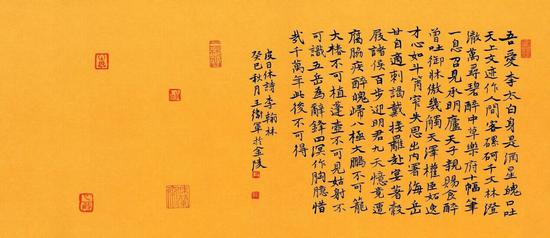 吾愛李太白身是酒星魄口吐
天上文迹作人間客磥砢千丈林澄
澈萬尋碧醉中草樂府十幅筆
一息召見承明廬天子親賜食醉
曾吐御牀傲幾觸天澤權臣妬逸
才心如斗筲窄失恩出內署海岳
甘自適刺謁戴接䍦赴宴著縠
屐諸侯百步迎明君九天憶竟遭
腐脇疾醉魄歸八極大鵬不可籠
大椿不可植蓬壺不可見姑射不
可識五岳為辭鋒四溟作胸臆惜
哉千萬年此俊不可得
皮日休詩李翰林
癸巳秋月王衛軍於金陵